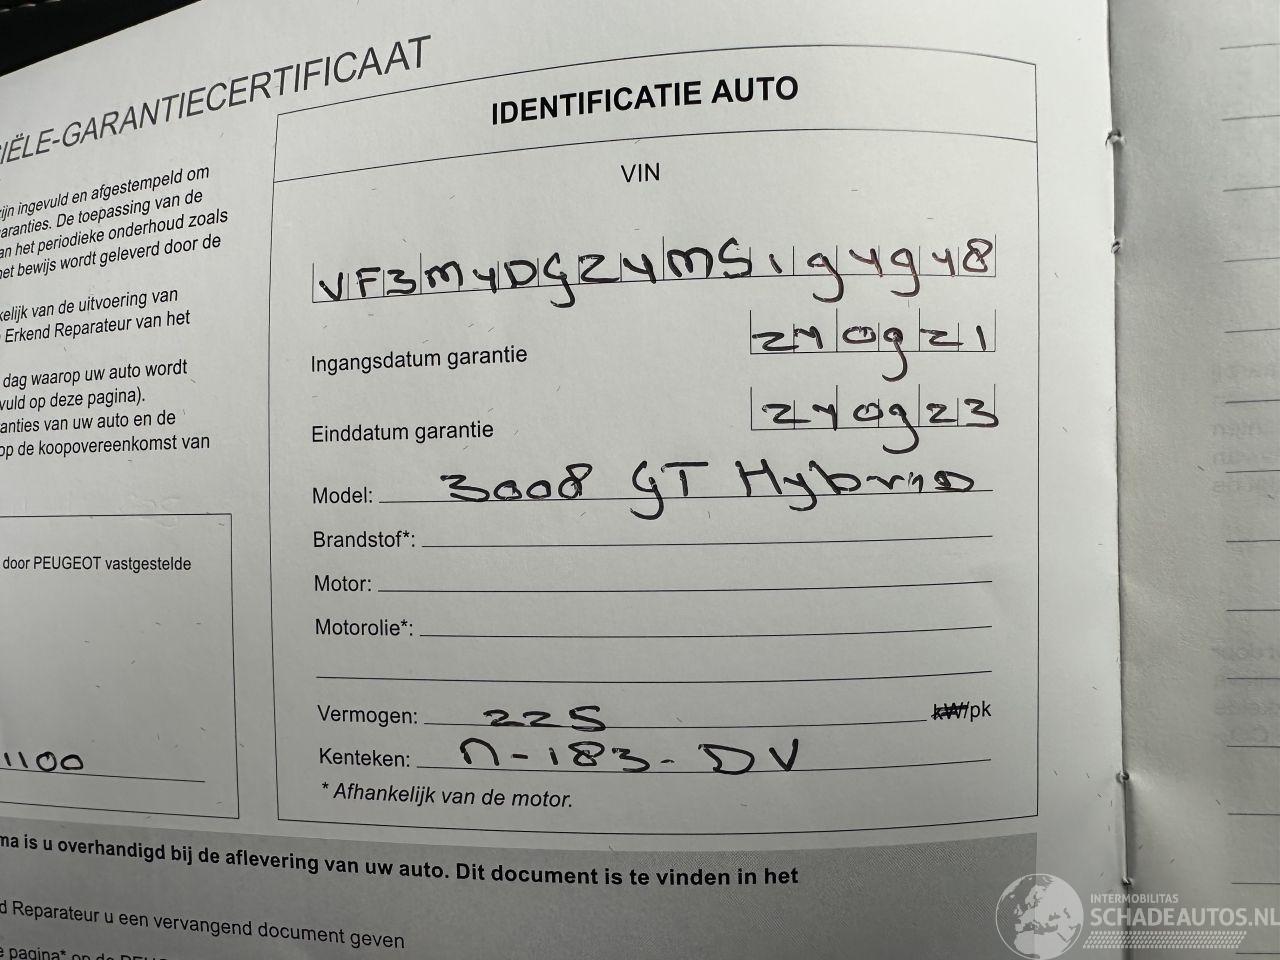 IËLE-GARANTIECERTIFICAAT
zijn ingevuld en afgestempeld om
garanties. De toepassing van de
an het periodieke onderhoud zoals
het bewijs wordt geleverd door de
kelijk van de uitvoering van
Erkend Reparateur van het
dag waarop uw auto wordt
vuld op deze pagina).
anties van uw auto en de
op de koopovereenkomst van
door PEUGEOT vastgestelde
1100
IDENTIFICATIE AUTO
VIN
VF3M4DGZ4MS194948
Ingangsdatum garantie 240921
Einddatum garantie 240923
Model: 3008 GT Hybrid
Brandstof*:
Motor:
Motorolie*:
Vermogen: 225 kW/pk
Kenteken: N-183-DV
* Afhankelijk van de motor.
ma is u overhandigd bij de aflevering van uw auto. Dit document is te vinden in het
d Reparateur u een vervangend document geven
INTERMOBILITAS
SCHADEAUTOS.NL